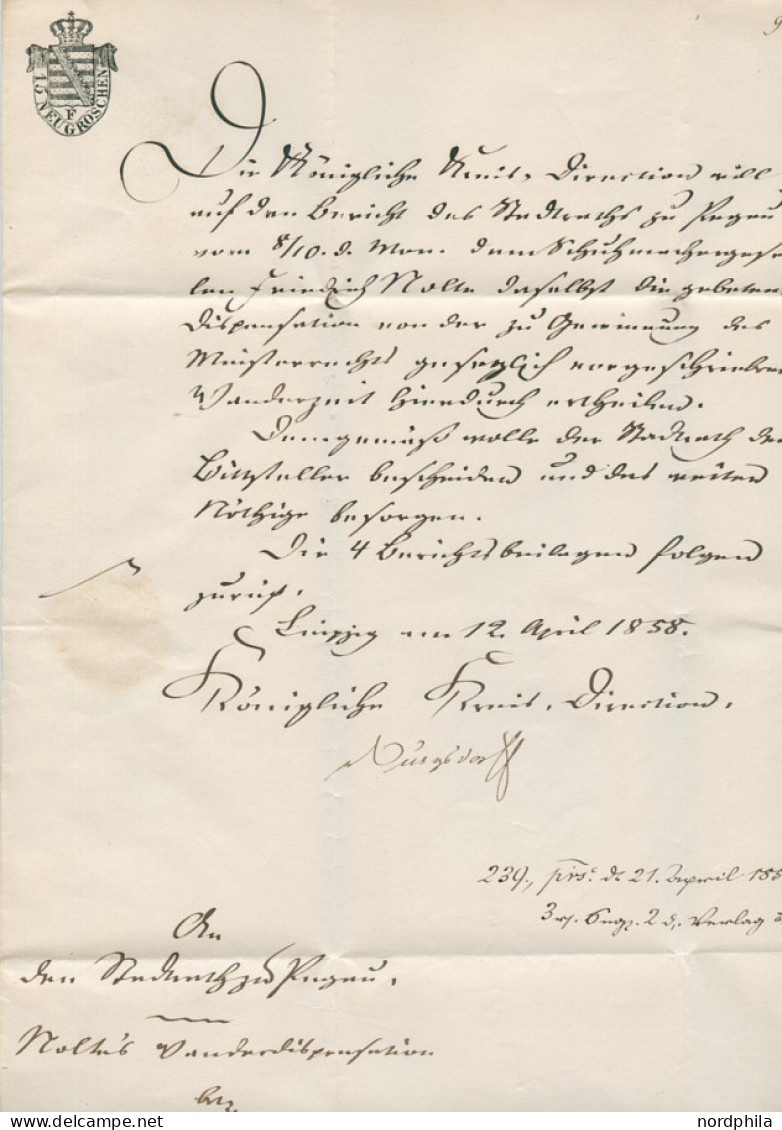 15 NEUGROSCHEN
F
Die Königliche Kreis-Direction will
auf den Bericht des Stadtraths zu Pegau
vom 8/10. d. Mon. dem Schuhmachergesel
len Friedrich Nolte daselbst die gebetene
Dispensation von der zu Gewinnung des
Meisterrechts gesetzlich vorgeschriebenen
Wanderzeit hierdurch ertheilen.
Demgemäß wolle der Stadtrath den
Bittsteller bescheiden und das weiter
Nöthige besorgen.
Die 4 Berichtsbeilagen folgen
zurück.
Leipzig am 12. April 1858.
Königliche Kreis-Direction.
239., präs. d. 21. April 185
2 d. Verlag
An
den Stadtrath zu Pegau.
Nolte's Wanderdispensation
betr.
nordphila